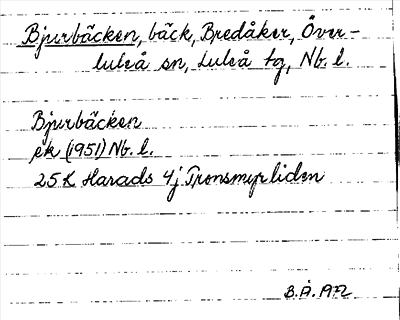 Bjurbäcken, bäck, Bredåker, Över-
luleå sn, Luleå tg, Nb. l.
Bjurbäcken
ek (1951) Nb. l.
25K Harads 4j Tronsmyrliden
B.Å.